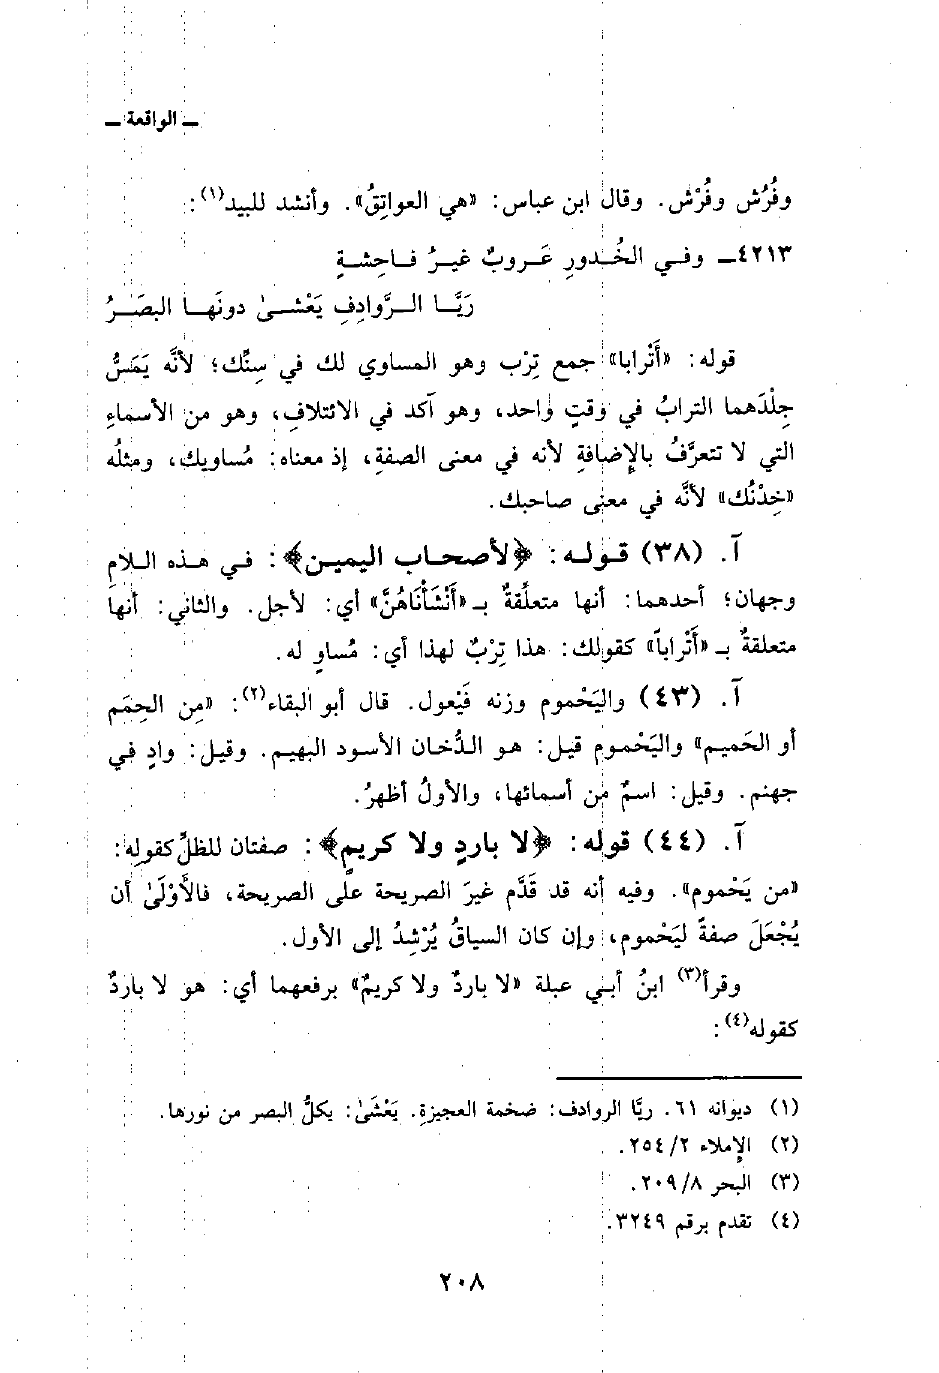 ـ الواقعة ـ
وفُرُش وفُرْش. وقال ابن عباس: «هي العواتِقُ». وأنشد للبيد(١):
٤٢١٣ـ وفــي الخُــدورِ عَــروبٌ غيــرُ فــاحِشــةٍ
رَيَّــا الــرَّوادِفِ يَعْشــىٰ دونَهــا البصَــرُ
قوله: «أَتْرابا» جمع تِرْب وهو المساوي لك في سِنِّك؛ لأنَّه يَمَسُّ
جِلْدَهما الترابُ في وقتٍ واحد، وهو آكد في الائتلافِ، وهو من الأسماءِ
التي لا تتعرَّفُ بالإِضافةِ لأنه في معنى الصفةِ، إذ معناه: مُساويك، ومثلُه
«خِدْنُك» لأنَّه في معنى صاحبك.
آ. (٣٨) قولـه: ﴿لأصحاب اليميـن﴾: فـي هـذه الـلامِ
وجهان؛ أحدهما: أنها متعلِّقةٌ بـ «أَنْشَأْنَاهُنَّ» أي: لأجل. والثاني: أنها
متعلقةٌ بـ «أَتْراباً» كقولك: هذا تِرْبٌ لهذا أي: مُساوٍ له.
آ. (٤٣) واليَحْموم وزنه فَيْعول. قال أبو البقاء(٢): «مِن الحِمَم
أو الحَميم» واليَحْموم قيل: هو الدُّخان الأسود البهيم. وقيل: وادٍ في
جهنم. وقيل: اسمٌ مِن أسمائها، والأولُ أظهرُ.
آ. (٤٤) قوله: ﴿لا باردٍ ولا كريمٍ﴾: صفتان للظلِّ كقولِه:
«من يَحْموم». وفيه أنه قد قَدَّم غيرَ الصريحة على الصريحة، فالأَوْلَىٰ أن
يُجْعَلَ صفةً ليَحْموم، وإن كان السياقُ يُرْشِدُ إلى الأول.
وقرأ(٣) ابنُ أبي عبلة «لا باردٌ ولا كريمٌ» برفعهما أي: هو لا باردٌ
كقوله(٤):
(١) ديوانه ٦١. ريَّا الروادف: ضخمة العجيزةِ. يَعْشَىٰ: يكلُّ البصر من نورها.
(٢) الإِملاء ٢/٢٥٤.
(٣) البحر ٨/٢٠٩.
(٤) تقدم برقم ٣٢٤٩.
٢٠٨